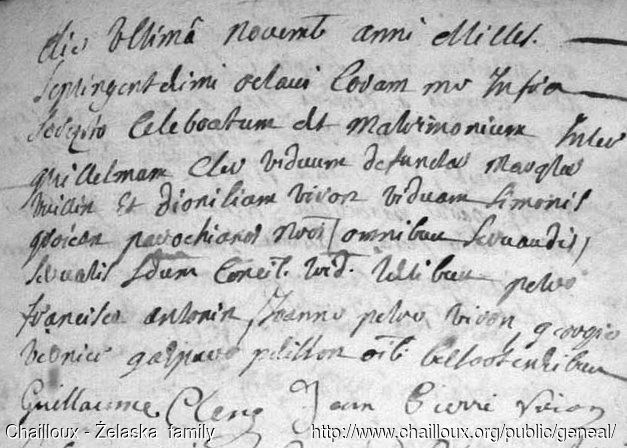 die Ultimâ novemb anni Milles.
Septingentesimi octavi Coram me Infra
Scripto Celebratum est Matrimonium Inter
guillelmum Cler viduum defunctæ
Et dionisiam viron viduam simonis
parochianos omnibus servandis
servatis Sdum Concil. trid. testibus petro
francisco antonin, Joanne petro viron, georgio
gaspare pelisson
Guillaume Clerg Jean Pierre Viron
Chailloux - Żelaska family http://www.chailloux.org/public/geneal/